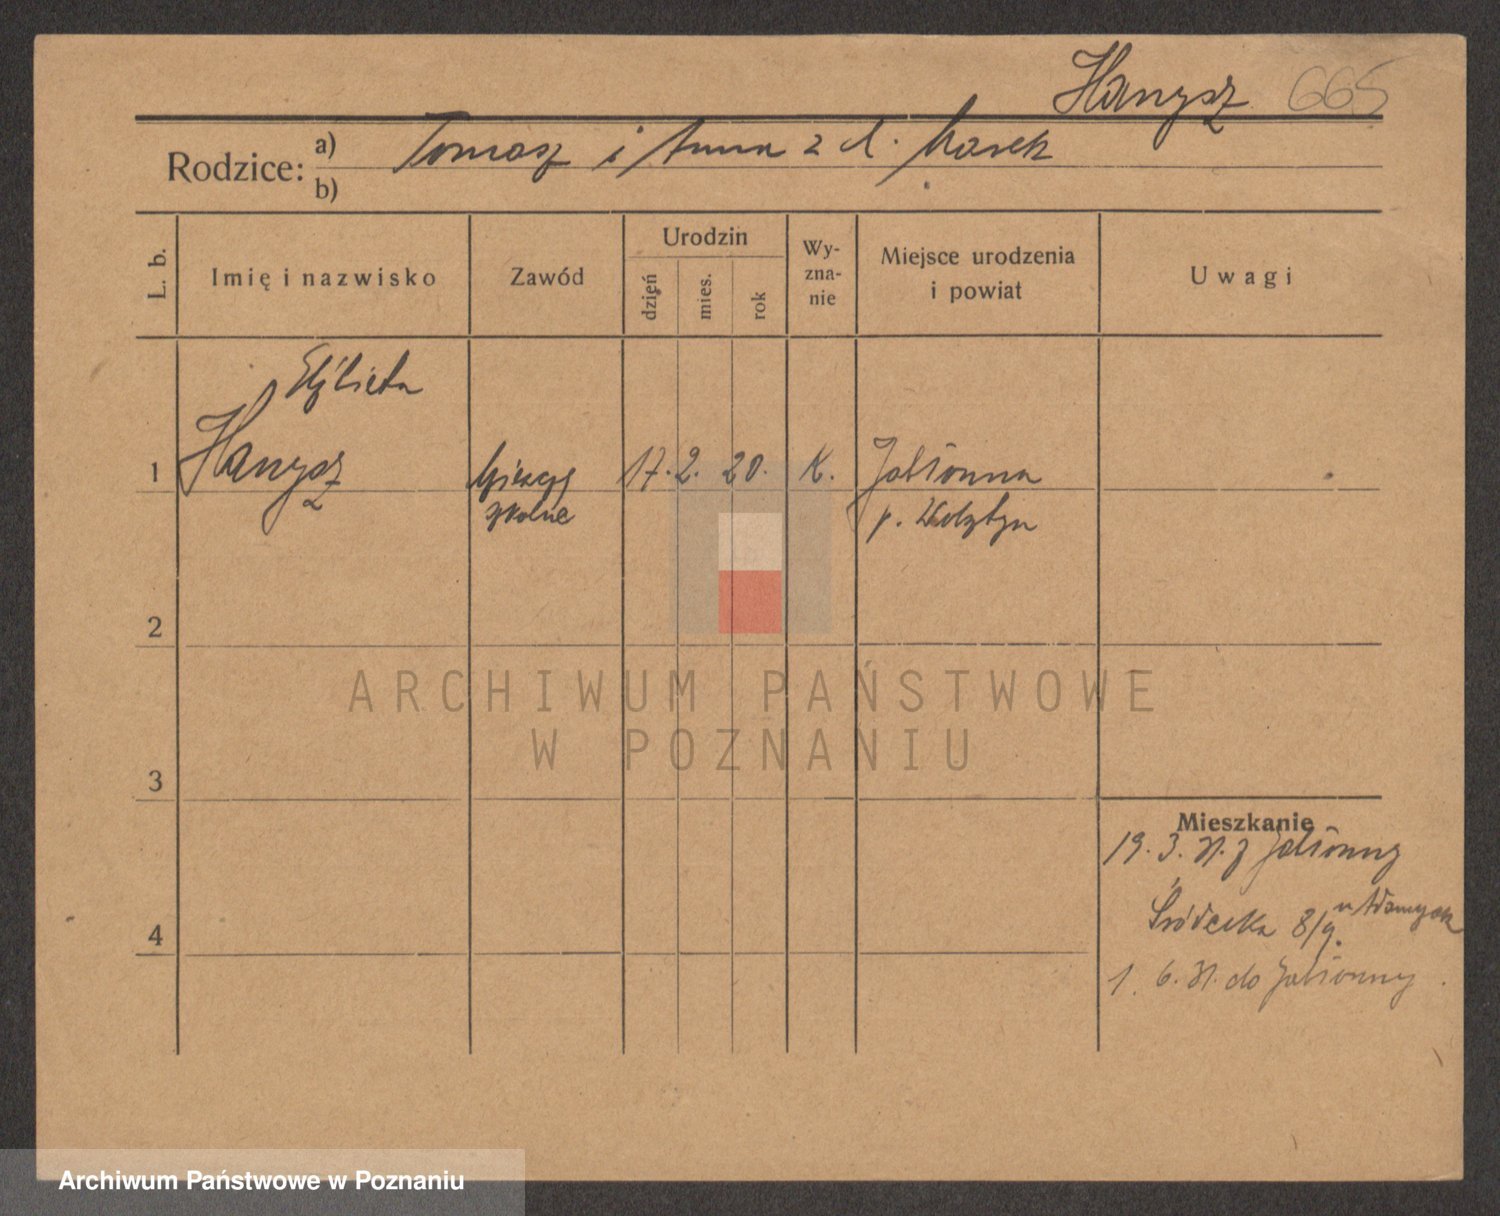 Hanysz 665
Rodzice: a) Tomasz i Anna z d. Marek
b)
L. b.
Imię i nazwisko
Zawód
Urodzin
dzień
mies.
rok
Wy-
zna-
nie
Miejsce urodzenia
i powiat
Uwagi
Elżbieta
1 Hanysz 17. 2. 20. K. Jabłonna
szkolne p. Wolsztyn
2
ARCHIWUM PAŃSTWOWE
W POZNANIU
3
Mieszkanie
19. 3. z Jabłonny
4 Śródecka 8/9. u Adamczak
1. 6. do Jabłonny
Archiwum Państwowe w Poznaniu